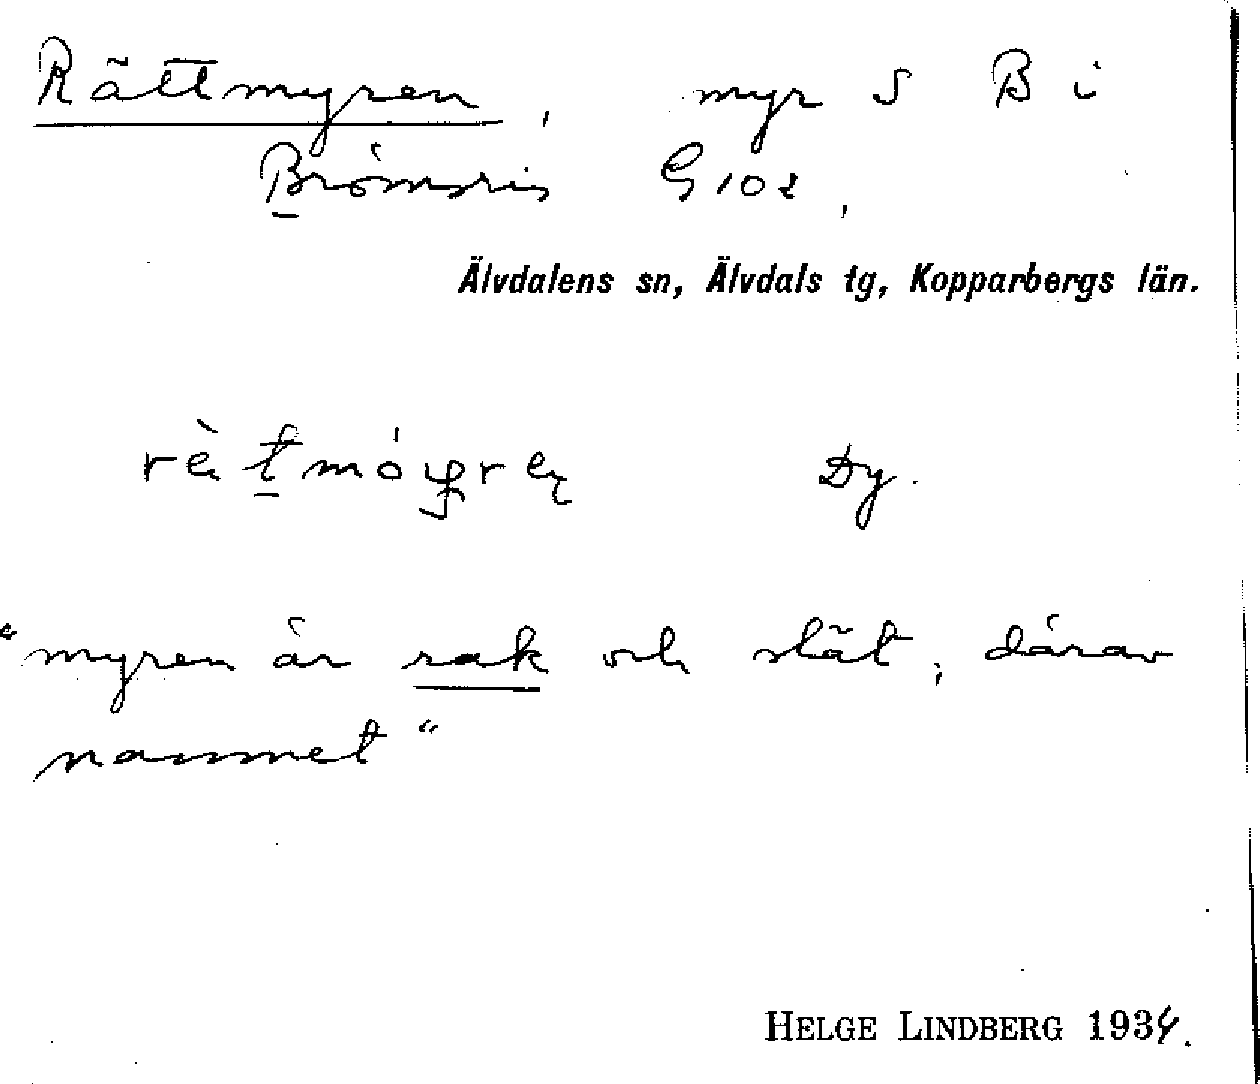 Rättmyren, myr S B i
Brömsris G 102,
Älvdalens sn, Älvdals tg, Kopparbergs län.
Dy.
"myren är rak och slät, därav
namnet"
HELGE LINDBERG 1934.